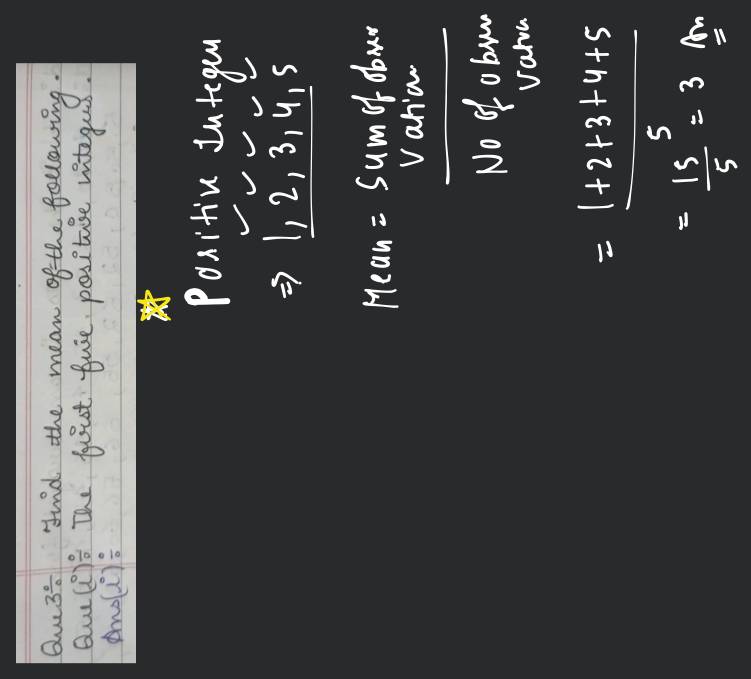 Que 3÷ Find the mean of the following.
Que (i)÷ The first five positive integers.
Ans (i)÷
Positive Integer
⇒ 1, 2, 3, 4, 5
Mean = Sum of obser
vation
No of obser
vation
= 1+2+3+4+5
5
= 15
5
= 3 Ans